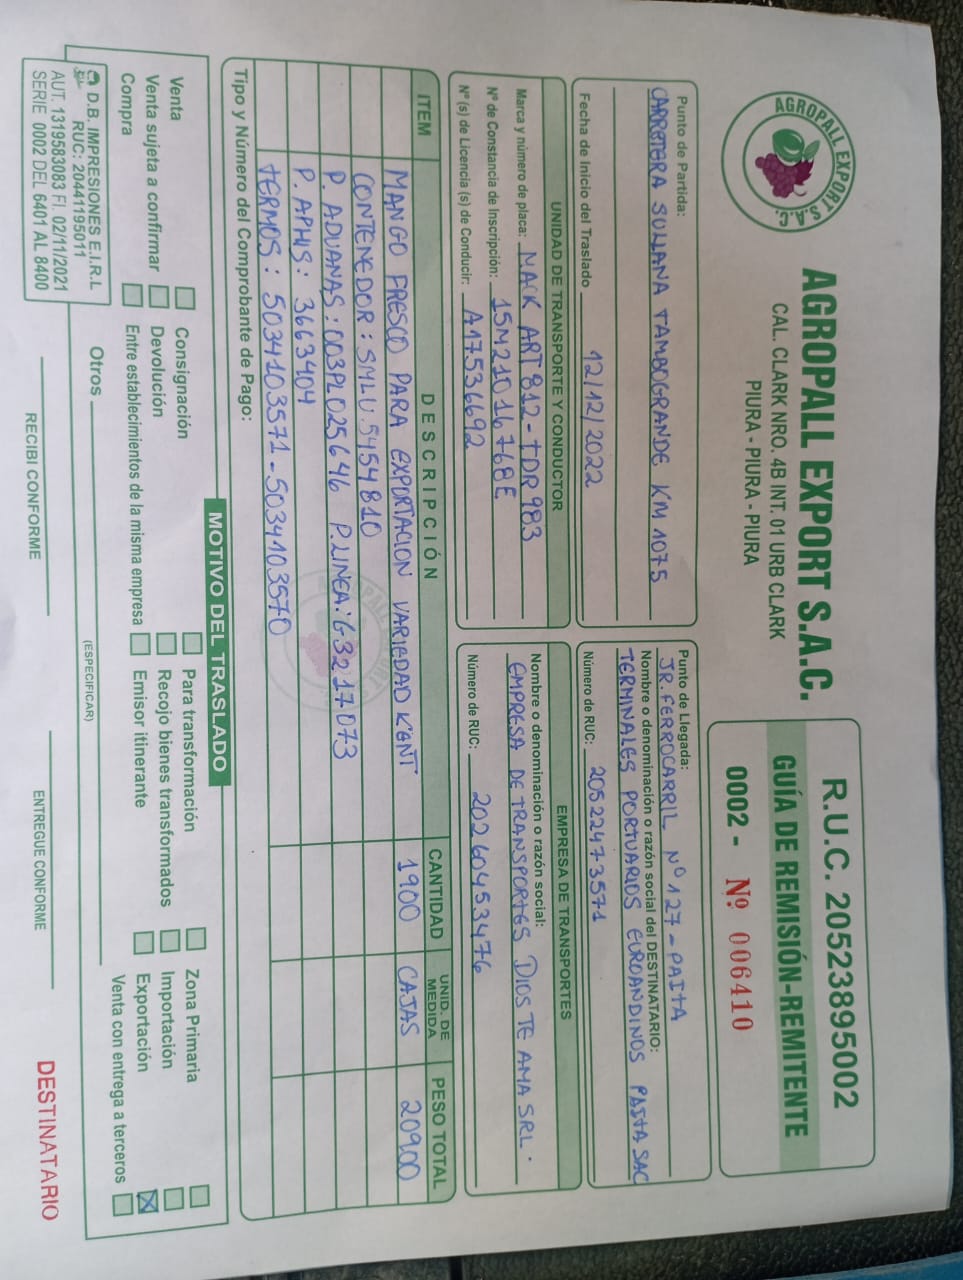 AGROPALL EXPORT S.A.C.
AGROPALL EXPORT S.A.C.
CAL. CLARK NRO. 4B INT. 01 URB CLARK
PIURA - PIURA - PIURA
R.U.C. 20523895002
GUÍA DE REMISIÓN-REMITENTE
0002 - Nº 006410
Punto de Partida:
CARRETERA SULLANA TAMBOGRANDE KM 1075
Punto de Llegada:
JR. FERROCARRIL Nº 127 - PAITA
Nombre o denominación o razón social del DESTINATARIO:
TERMINALES PORTUARIOS EUROANDINOS PAITA SAC
Fecha de Inicio del Traslado 12/12/2022
Número de RUC: 20522473571
UNIDAD DE TRANSPORTE Y CONDUCTOR
Marca y número de placa: MACK ART 812 - TDR 983
Nº de Constancia de Inscripción: 15M21016768E
Nº (s) de Licencia (s) de Conducir: A17536692
EMPRESA DE TRANSPORTES
Nombre o denominación o razón social:
EMPRESA DE TRANSPORTES DIOS TE AMA SRL.
Número de RUC: 20260453476
ITEM DESCRIPCIÓN CANTIDAD UNID. DE MEDIDA PESO TOTAL
MANGO FRESCO PARA EXPORTACION VARIEDAD KENT 1900 CAJAS 20900
CONTENEDOR: SMLU 5454810
P. ADUANAS: 003PL025646 P.LINEA: 63217073
P. APHIS: 3663404
TERMOS: 5034103571 - 5034103570
Tipo y Número del Comprobante de Pago:
MOTIVO DEL TRASLADO
Venta Consignación Para transformación Zona Primaria
Venta sujeta a confirmar Devolución Recojo bienes transformados Importación
Compra Entre establecimientos de la misma empresa Emisor itinerante Exportación X
Venta con entrega a terceros
Otros
(ESPECIFICAR)
D.B. IMPRESIONES E.I.R.L
RUC: 20441195011
AUT. 1319583083 FI. 02/11/2021
SERIE 0002 DEL 6401 AL 8400
RECIBI CONFORME
ENTREGUE CONFORME
DESTINATARIO